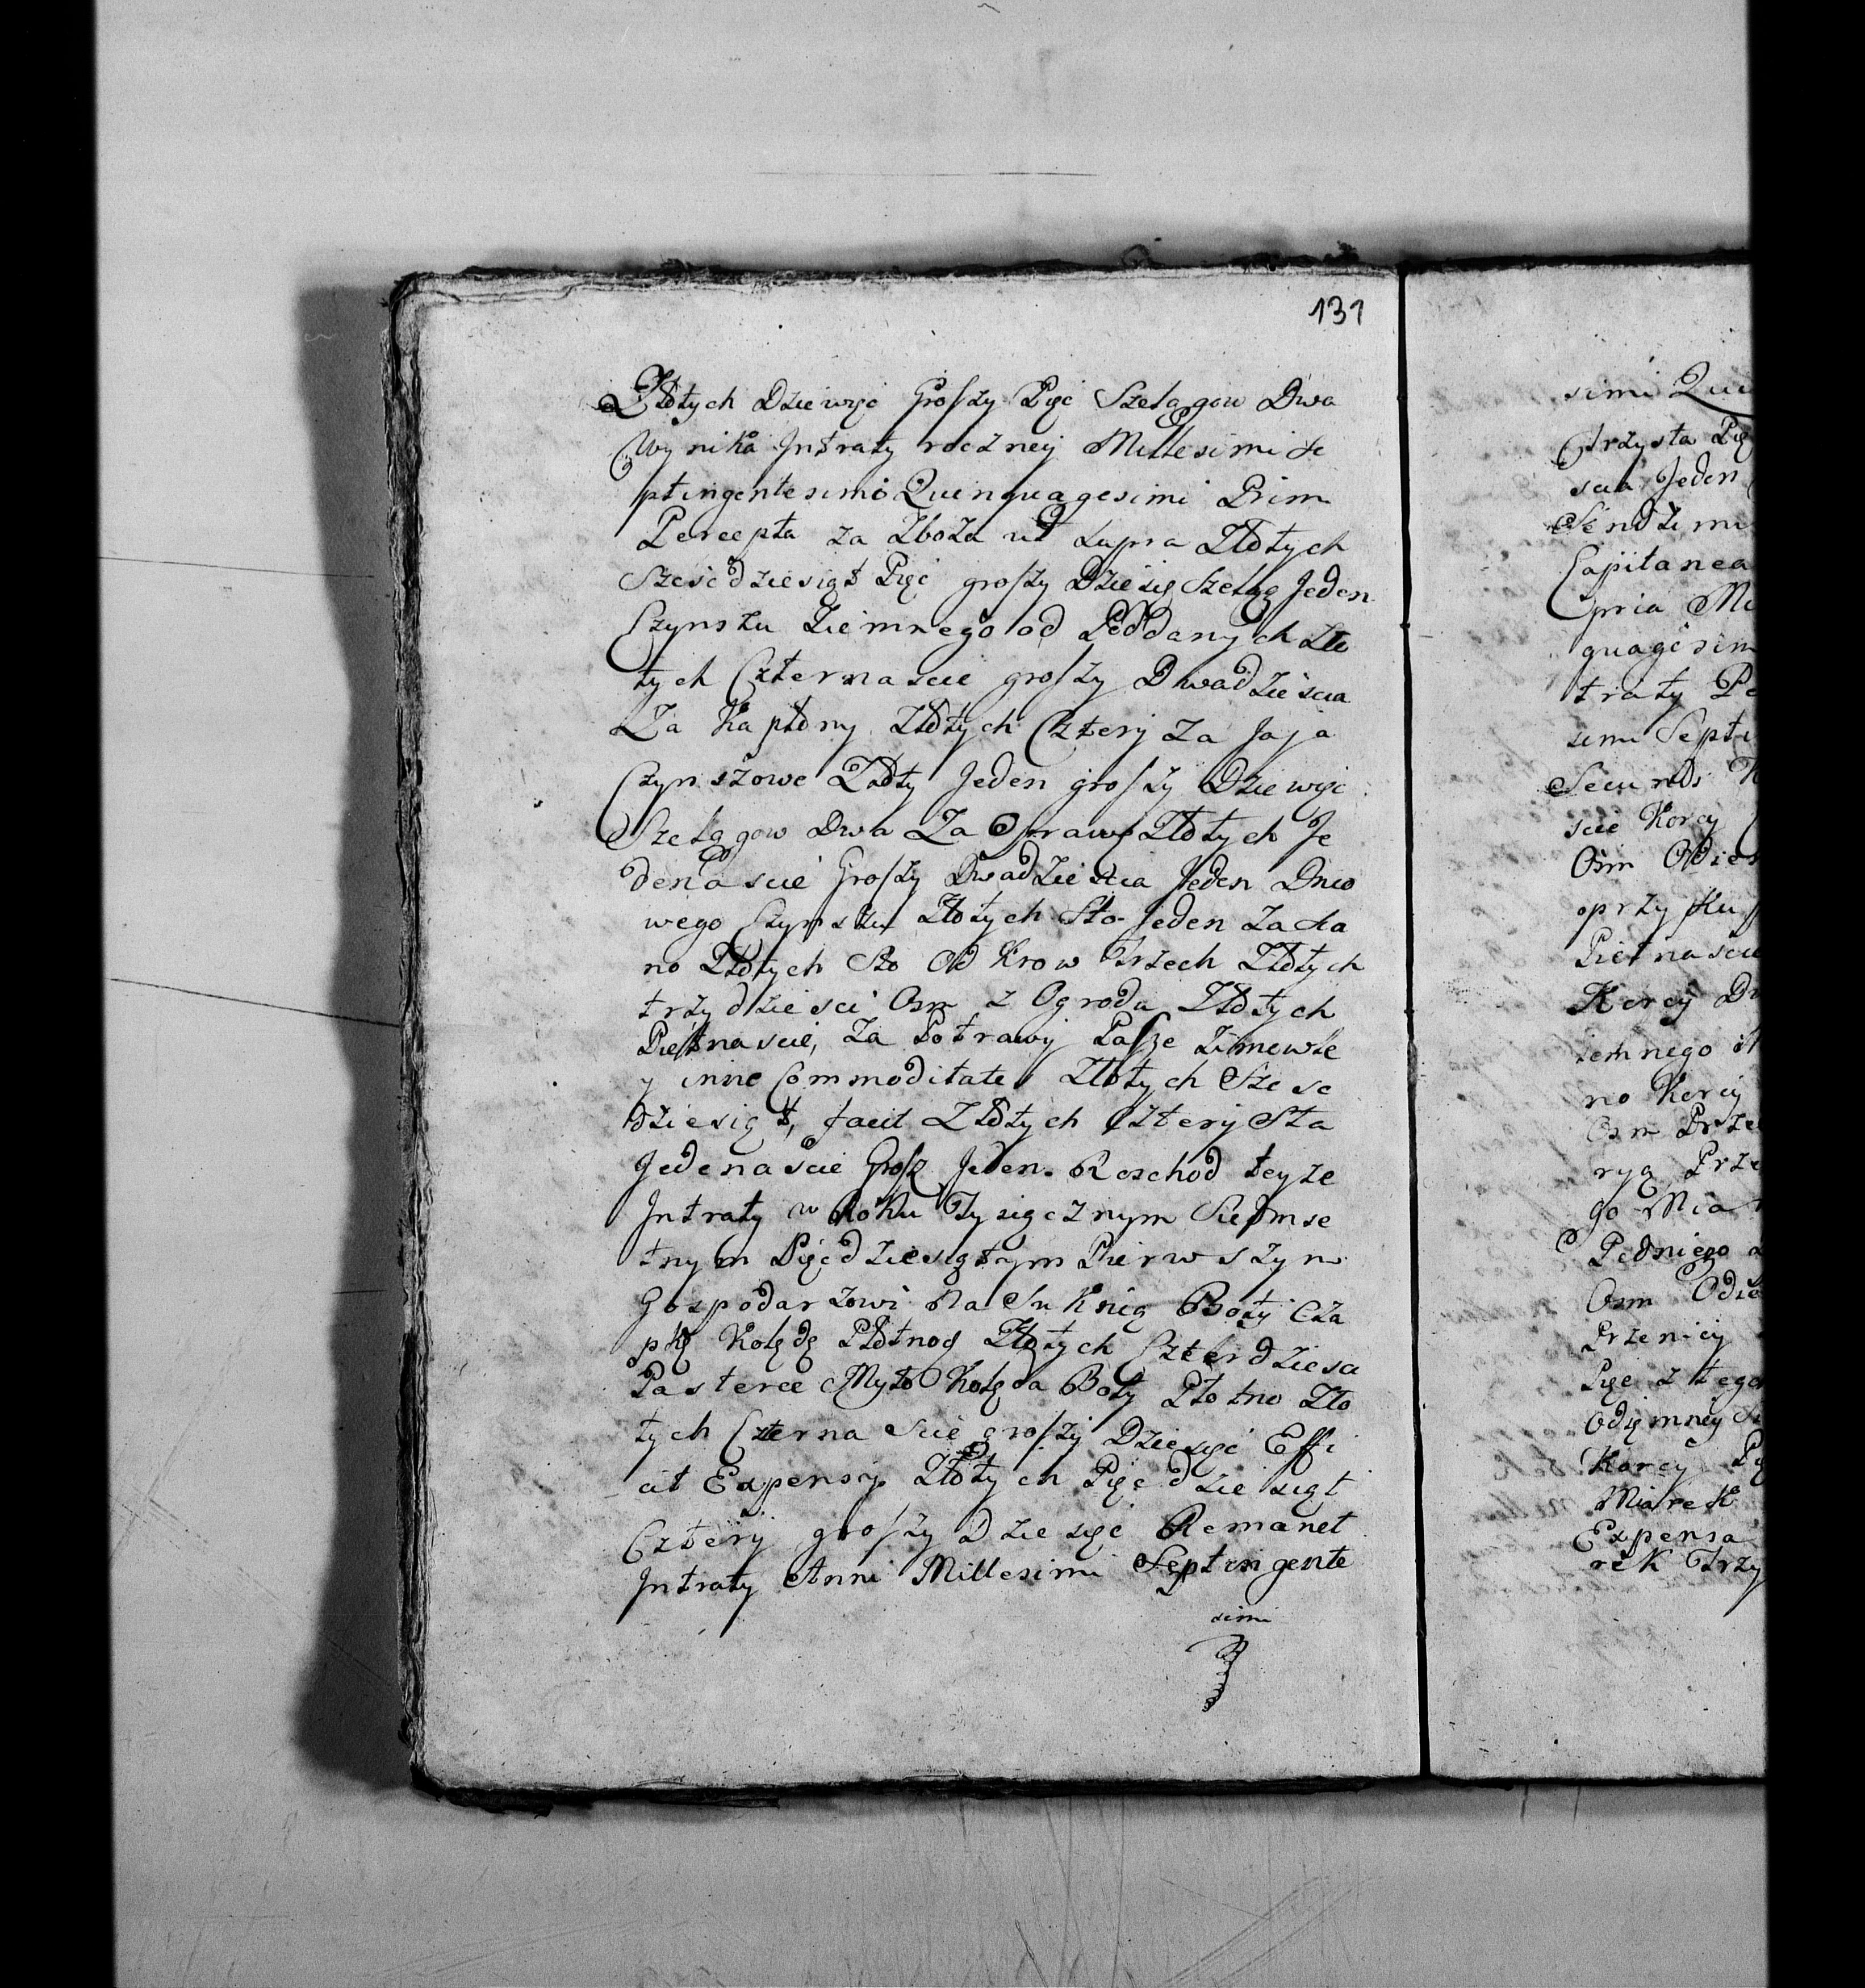 131
Złotych Dziewięć Groszy Pięć Szelągow Dwa
Wynika Intraty roczney Millesimi Se
ptingentesimi Quinquagesimi Primi
Percepta za Zboża ut supra Złotych
Sześćdziesiąt Pięć groszy Dziesię Szeląg Jeden
Czynszu Ziemnego od Poddanych Zło
tych Czternascie groszy Dwadzieścia
Za Kapłony Złotych Cztery Za Jaja
Czynszowe Złoty Jeden groszy Dziewięć
Szelągow Dwa Za Oprawę Złotych Je
denascie Groszy Dwadzieścia Jeden Dnio
wego Czynszu Złotych Sto Jeden Za sia
no Złotych Sto Od Krow Trzech Złotych
trzydzieści Osm z Ogrodu Złotych
Piętnascie, Za Potrawy Paszę Zimowłe
y inne Commoditates Złotych Sześć
dziesiąt, facit Złotych Cztery Sta
Jedenascie Grosz Jeden. Roschod teyże
Intraty w Roku Tysiącznym Siedmse
tnym Pięćdziesiątym Pierwszym
Gospodarzowi Na Suknią Boty Cza
pkę Kolędę Płotnog Złotych Czterdziesci
Pasterce Myto Kolęda Boty Płotno Zło
tych Czternascie groszy Dziesięć Effi
cit Expensy Złotych Pięćdziesiąt
Cztery groszy Dziesięć Remanet
Intraty Anni Millesimi Septingente
simi
simi Qui
Trzysta Pię
scia Jeden
Sendzimi
Capitanea
Cpria Mi
quagesim
traty Pe
simi Septi
Secundi
scie Korcy
Osm Odien
przy
Pietnascie
Korcy Dw
iemnego
no Korcy
Osm Prze
ryą Prze
go Mia
Pędniego
Osm Odie
Przenicy
Pięc z tego
odięmney
Korcy Pię
Miarek
Expensa
rek Trzy